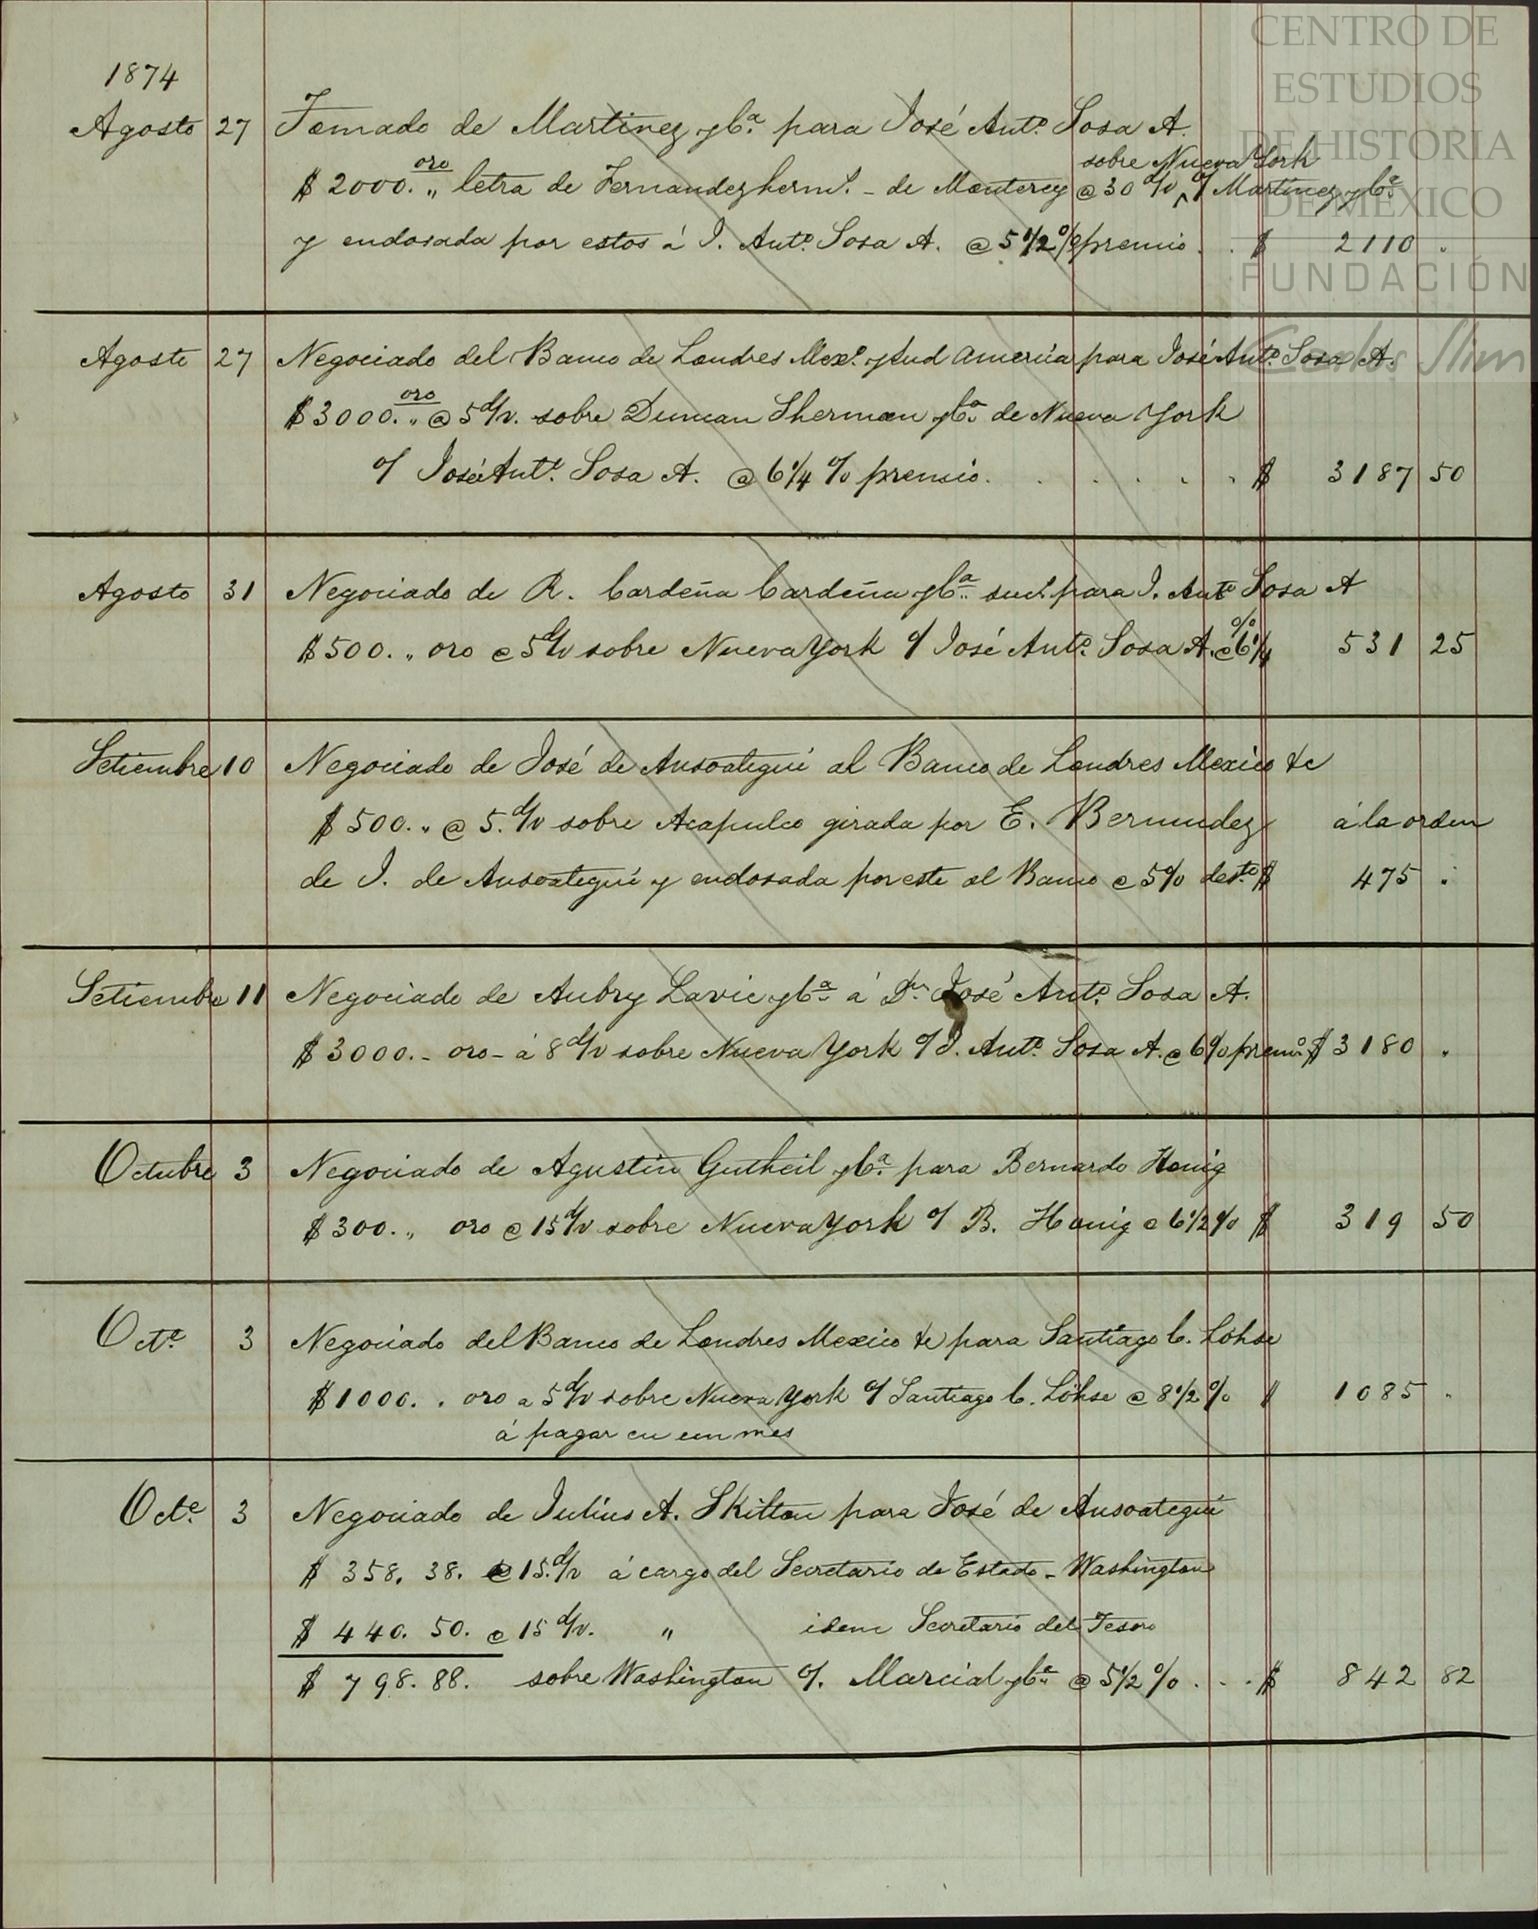 CENTRO DE
ESTUDIOS
DE HISTORIA
DE MÉXICO
FUNDACIÓN
Carlos Slim
1874
Agosto 27 Tomado de Martinez y Cª para José Antº Sosa A.
sobre Nueva York
$ 2000. oro „ letra de Fernandez herms. - de Monterey @ 30 d/v o/ Martinez y Cª
y endosada por estos á J. Antº Sosa A. @ 5 1/2 % premio . . $ 2110 "
Agosto 27 Negociado del Banco de Londres Mexº y Sud America para José Antº Sosa A.
$ 3000. oro „ @ 5 d/v. sobre Duncan Sherman y Cª de Nueva York
o/ José Antº Sosa A. @ 6 1/4 % premio. . . . . . $ 3187 50
Agosto 31 Negociado de R. Cardeña Cardeña y Cª suc. para J. Antº Sosa A
$ 500. „ oro @ 5 d/v sobre Nueva York o/ José Antº Sosa A. @ 6 1/4 % 531 25
Setiembre 10 Negociado de José de Ansoategui al Banco de Londres Mexico &c
$ 500. „ @ 5. d/v sobre Acapulco girada por E. Bermudez á la orden
de J. de Ansoategui y endosada por este al Banco @ 5% desto $ 475 "
Setiembre 11 Negociado de Aubry Lavie y Cª á Dn José Antº Sosa A.
$ 3000. - oro - á 8 d/v sobre Nueva York o/ J. Antº Sosa A. @ 6% premº $ 3180 "
Octubre 3 Negociado de Agustin Gutheil y Cª para Bernardo Honig
$ 300. „ oro @ 15 d/v sobre Nueva York o/ B. Honig @ 6 1/2 % $ 319 50
Octe 3 Negociado del Banco de Londres Mexico &c para Santiago C. Löhse
$ 1000. „ oro a 5 d/v sobre Nueva York o/ Santiago C. Löhse @ 8 1/2 % $ 1085 "
á pagar en un mes
Octe 3 Negociado de Julius A. Skilton para José de Ansoategui
$ 358. 38. @ 15. d/v á cargo del Secretario de Estado - Washington
$ 440. 50. @ 15 d/v. „ idem Secretario del Tesoro
$ 798. 88. sobre Washington o/. Marcial y Cª @ 5 1/2 % . . . $ 842 82